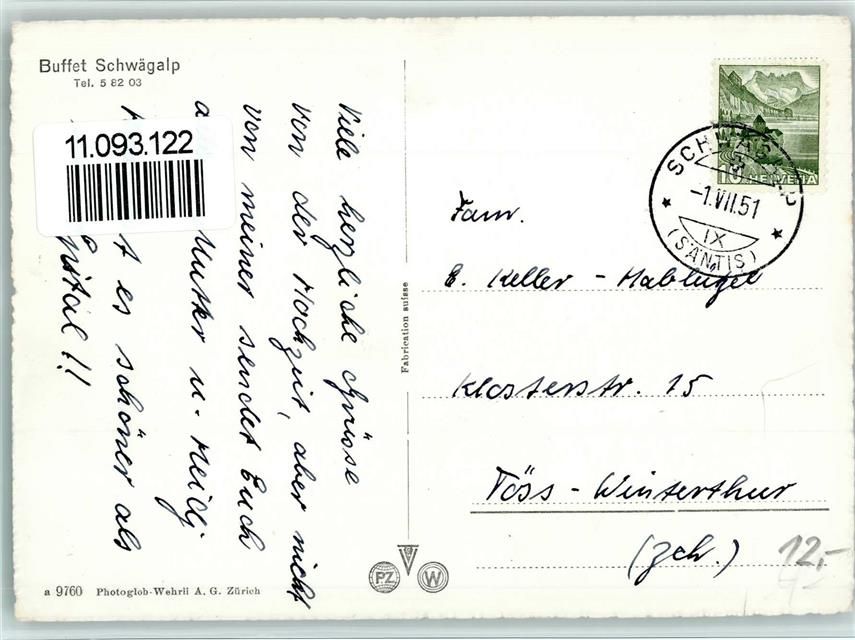 Buffet Schwägalp
Tel. 5 82 03
11.093.122
Viele herzliche Grüsse
von der Hochzeit, aber nicht
von meiner sendet Euch
Mutter u. Heidi
es schöner als
Spital!!
Fabrication suisse
a 9760 Photoglob-Wehrli A. G. Zürich
PZ
W
10 HELVETIA
SCHWÄGALP
-1.VII.51
IX
(SÄNTIS)
Fam.
E. Keller - Hablützel
Klosterstr. 15
Töss - Winterthur
(Zch.)
12,-